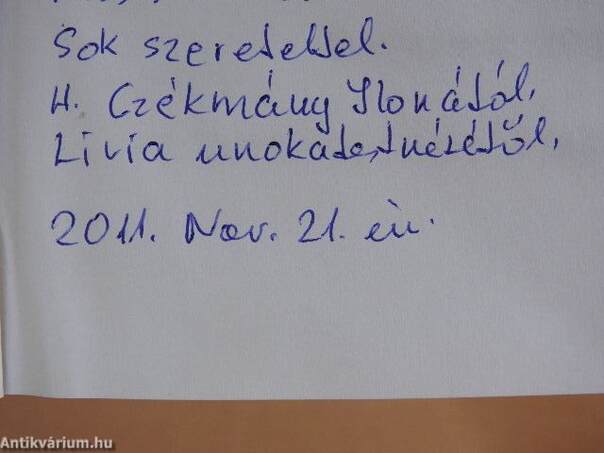 Sok szeretettel.
H. Czékmány Ilonától,
Livia unokatestnérétől,
2011. Nov. 21. én.
Antikvárium.hu